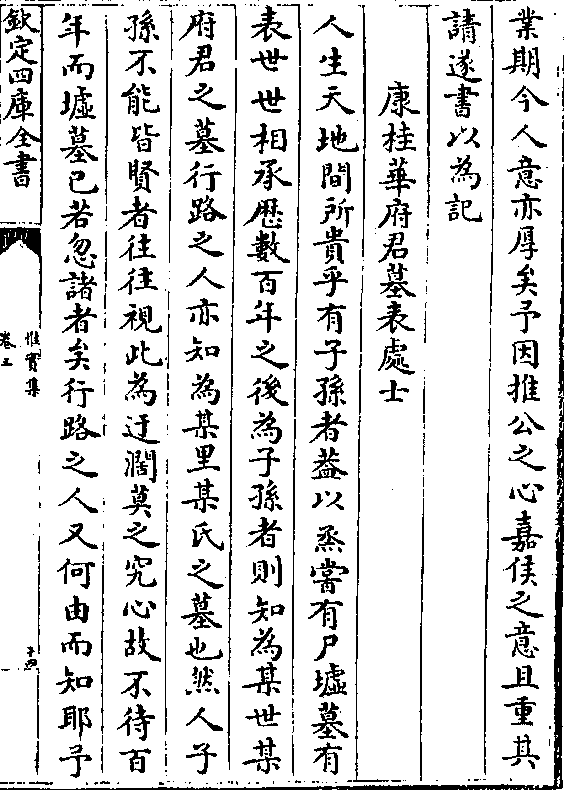 業期今人意亦厚矣予因推公之心嘉侯之意且重其
請遂書以為記
康桂華府君墓表處士
人生天地間所貴乎有子孫者葢以烝嘗有尸墟墓有
表世世相承歴數百年之後為子孫者則知為某世某
府君之墓行路之人亦知為某里某氏之墓也然人子
孫不能皆賢者往往視此為迂濶莫之究心故不待百
年而墟墓已若忽諸者矣行路之人又何由而知耶予
欽定四庫全書
惟實集
卷三
十四